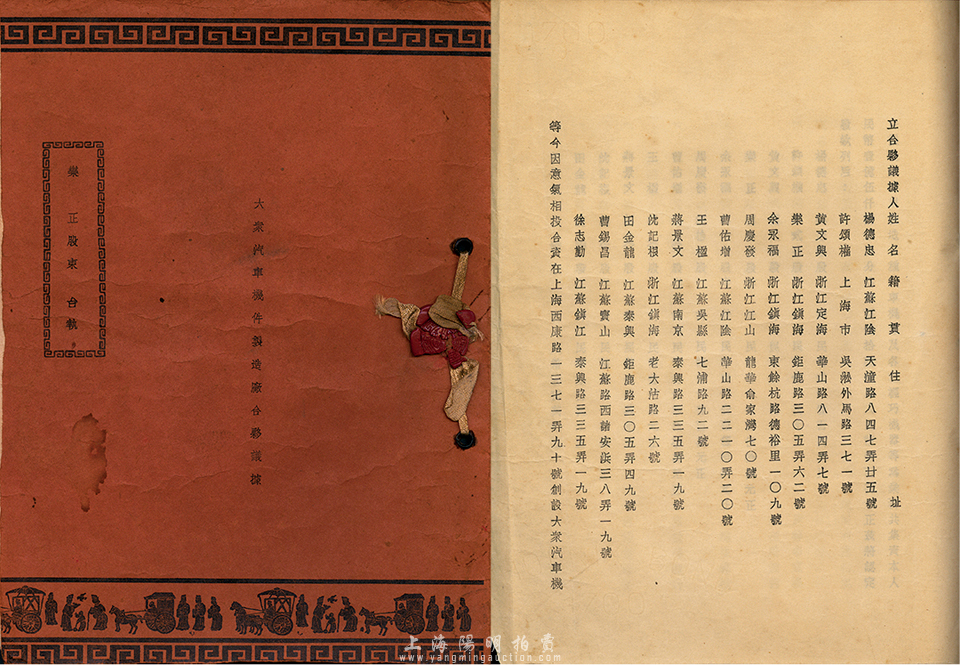 大眾汽車機件製造廠合夥議據
樂正股東台執
立合夥議據人姓名籍貫住址
楊德忠 江蘇江陰 天潼路八四七弄廿五號
許頌權 上海市 吳淞外馬路三七一號
黃文興 浙江定海 華山路八一四弄七號
樂正 浙江鎮海 鉅鹿路三〇五弄六二號
余眾福 浙江鎮海 東餘杭路德裕里一〇九號
周慶發 浙江江山 龍華俞家灣七〇號
曹佑增 江蘇江陰 華山路二二一〇弄二〇號
王楹 江蘇吳縣 七浦路九二號
蔣景文 江蘇南京 泰興路三三五弄一九號
沈記根 浙江鎮海 老大沽路二六號
田金龍 江蘇泰興 鉅鹿路三〇五弄四九號
曹錫昌 江蘇寶山 江蘇路西諸安浜三八弄一九號
徐志勤 江蘇鎮江 泰興路三三五弄一九號
等今因意氣相投合資在上海西康路一三七一弄九十號創設大眾汽車機
上海陽明拍賣
www.yangmingauction.com